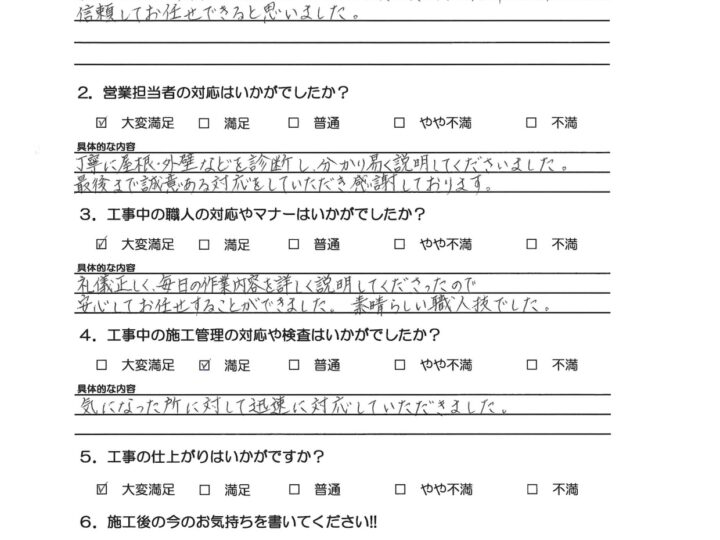 信頼してお任せできると思いました。
2. 営業担当者の対応はいかがでしたか？
☑ 大変満足 □ 満足 □ 普通 □ やや不満 □ 不満
具体的な内容
丁寧に屋根・外壁などを診断し、分かり易く説明してくださいました。
最後まで誠意ある対応をしていただき感謝しております。
3. 工事中の職人の対応やマナーはいかがでしたか？
☑ 大変満足 □ 満足 □ 普通 □ やや不満 □ 不満
具体的な内容
礼儀正しく、毎日の作業内容を詳しく説明してくださったので
安心してお任せすることができました。素晴らしい職人技でした。
4. 工事中の施工管理の対応や検査はいかがでしたか？
□ 大変満足 ☑ 満足 □ 普通 □ やや不満 □ 不満
具体的な内容
気になった所に対して迅速に対応していただきました。
5. 工事の仕上がりはいかがですか？
☑ 大変満足 □ 満足 □ 普通 □ やや不満 □ 不満
6. 施工後の今のお気持ちを書いてください!!